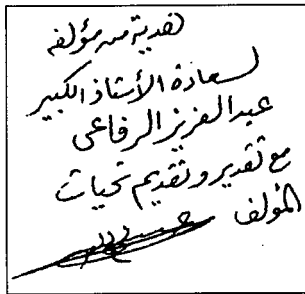 هدية من مؤلفه
لسعادة الأستاذ الكبير
عبد العزيز الرفاعى
مع تقدير وتقديم تحيات
المؤلف